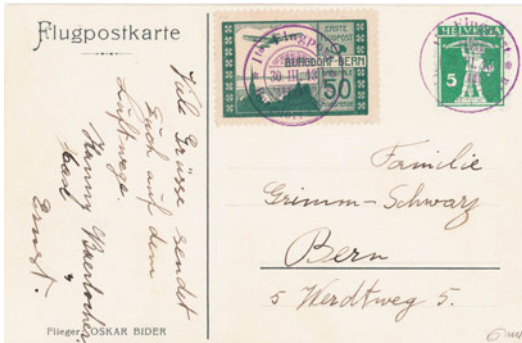 Flugpostkarte
Viele Grüsse sendet
Euch auf dem
Luftwege.
Hanny Baerlocher
Ernst.
Flieger OSKAR BIDER
ERSTE
FLUGPOST
BURGDORF-BERN
30. III. 13
50
Flugpost
HELVETIA
5
Familie
Grimm-Schwarz
Bern
5 Werdtweg 5.